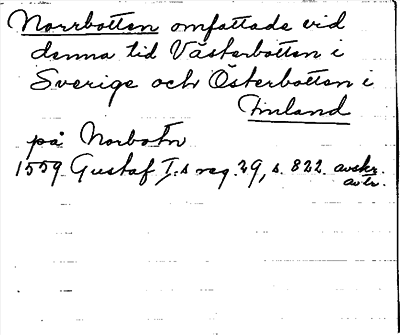 Norrbotten omfattade vid
denna tid Västerbotten i
Sverige och Österbotten i
Finland
på Norbotn
1559 Gustaf I.s reg. 29, s. 822. avskr.
avtr.